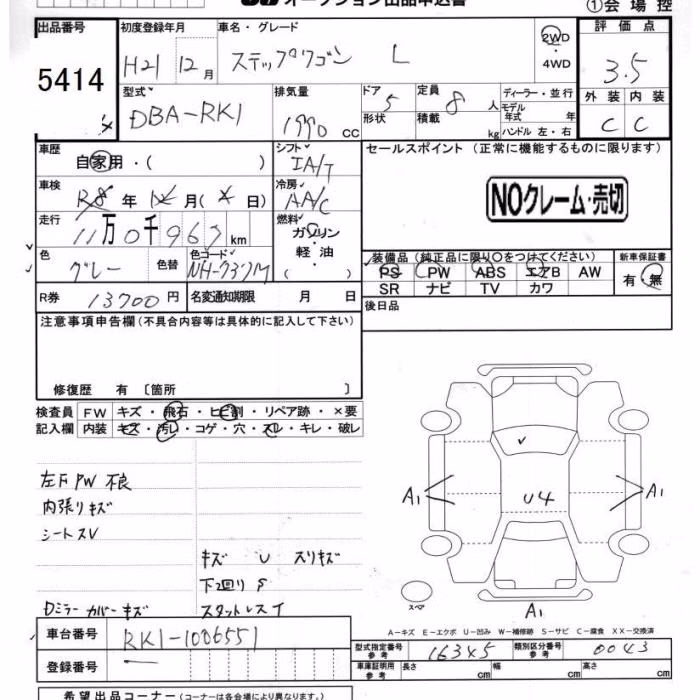 オークション出品申込書
①会場控
出品番号 初度登録年月 車名・グレード 評価点
5414 H21 12月 ステップワゴン L 2WD・4WD 3.5
型式 排気量 ドア 定員 ディーラー・並行 外装 内装
DBA-RK1 1990 cc 5 8人 モデル年式 年 C C
形状 積載 kg ハンドル 左・右
車歴 シフト セールスポイント (正常に機能するものに限ります)
自家用・( ) IA/T
車検 冷房 NOクレーム・売切
R8年 月( 日) AA/C
走行 燃料
11万0千967km ガソリン・軽油・( )
色 色替 色コード 装備品 (純正品に限り〇をつけてください) 新車保証書
グレー NH-737M PS PW ABS エアB AW 有・無
SR ナビ TV カワ
R券 13700円 名変通知期限 月 日 後日品
注意事項申告欄 (不具合内容等は具体的に記入して下さい)
修復歴 有 〔箇所 〕
検査員 FW キズ・飛石・ヒビ割・リペア跡・×要
記入欄 内装 キズ・汚し・コゲ・穴・スレ・キレ・破レ
左F PW 不良
内張りキズ
シートスV
キズ U スリキズ
下回りS
Dミラーカバーキズ
A1
U4
A1
A1
スペア
A-キズ E-エクボ U-凹み W-補修跡 S-サビ C-腐食 XX-交換済
車台番号 RK1-1006551
登録番号
型式指定番号 参考 163x5 類別区分番号 参考 0043
車庫証明用 参考 長さ cm 幅 cm 高さ cm
希望出品コーナー (コーナーは各会場により異なります。)